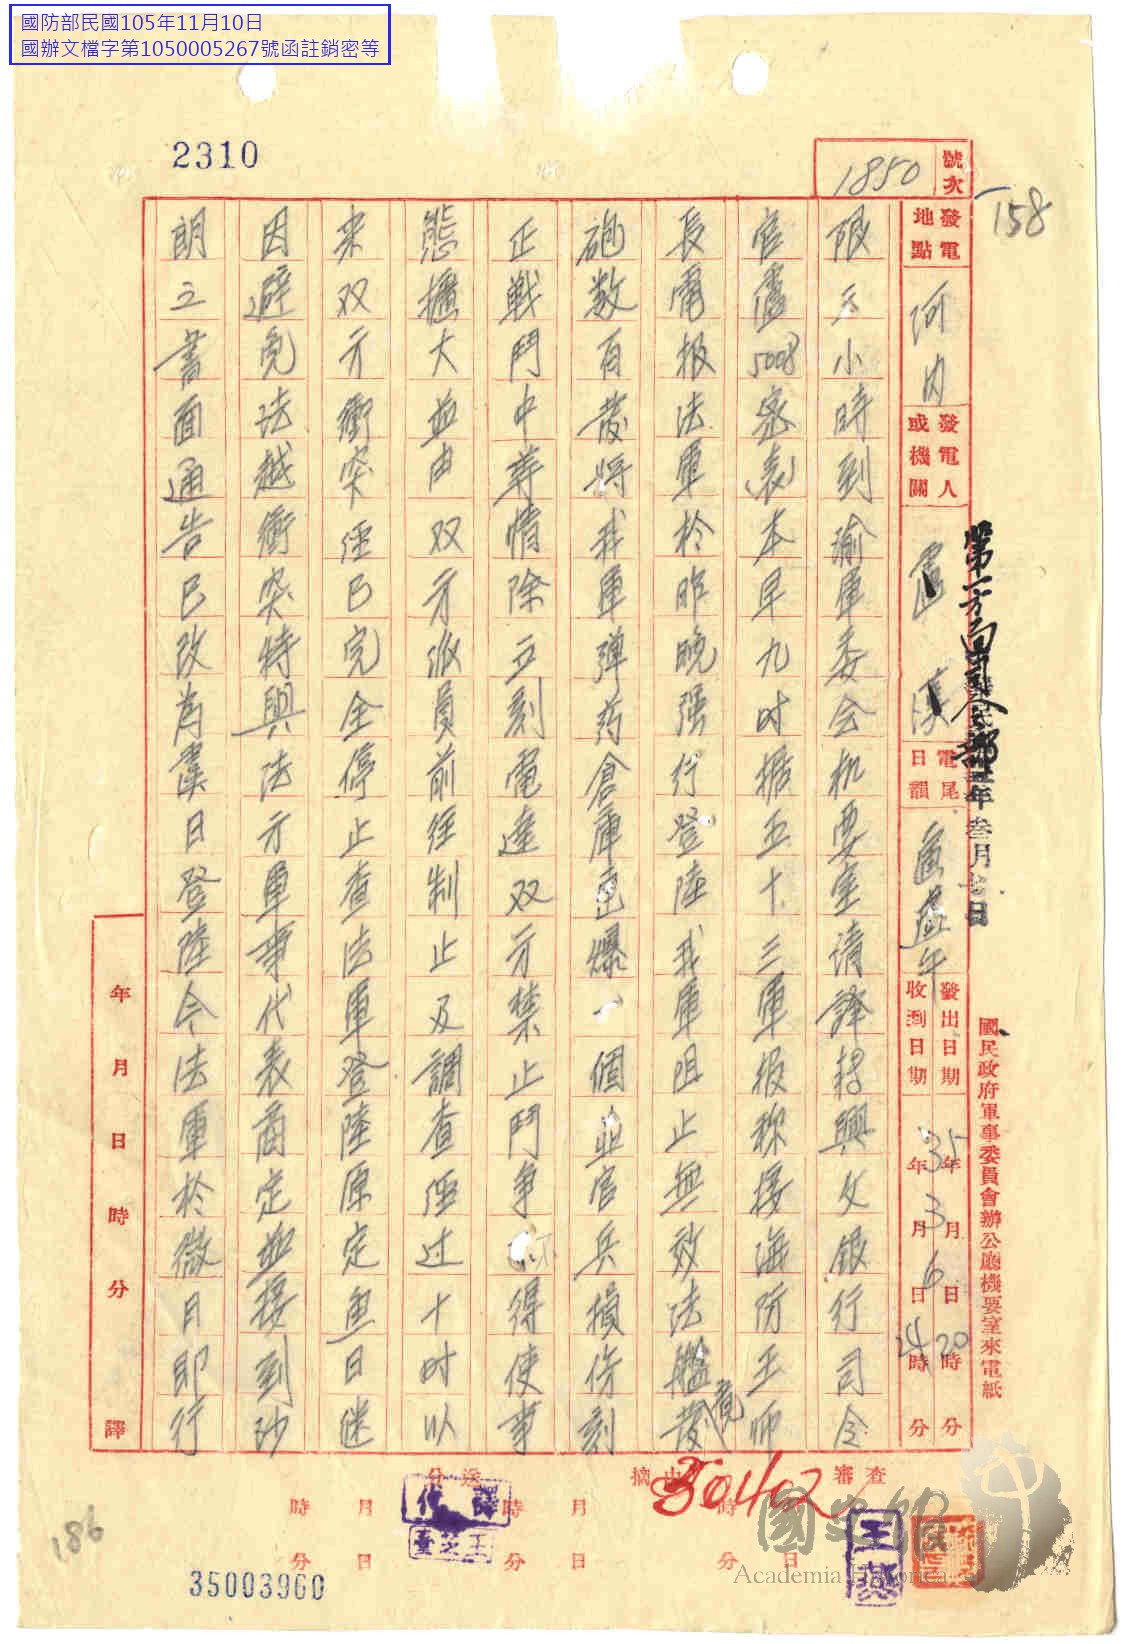 國防部民國105年11月10日
國辦文檔字第1050005267號函註銷密等
2310
158
號次 1850
發電地點 河內
發電人或機關 盧漢
第一方面軍司令部
年叁月 日
電尾日韻
發出日期 35年3月6日20時 分
收到日期 年 月 日 24時 分
國民政府軍事委員會辦公廳機要室來電紙
限二小時到渝軍委会机要室請譯轉興文銀行司令
官盧5008密表本早九时據五十三軍报称接海防王师
長電报法軍於昨晚强行登陸我軍阻止無效法艦竟發
砲数百發將我軍彈药倉庫 爆一個並官兵損伤刻
正戦鬥中等情除立刻電達双方禁止鬥爭 得使事
態擴大並由双方派員前往制止及調查經过十时以
来双方衝突經已完全停止查法軍登陸原定魚日 
因避免法越衝突特與法方軍事代表商定並接到沙
朗之書面通告已改為 日登陸今法軍於微日即行
年 月 日 時 分 譯
查審
摘由
50402
送 分
月 日 時 分
月 日 時 分
王芝臺
186
35003960
國史館
Academia Historica